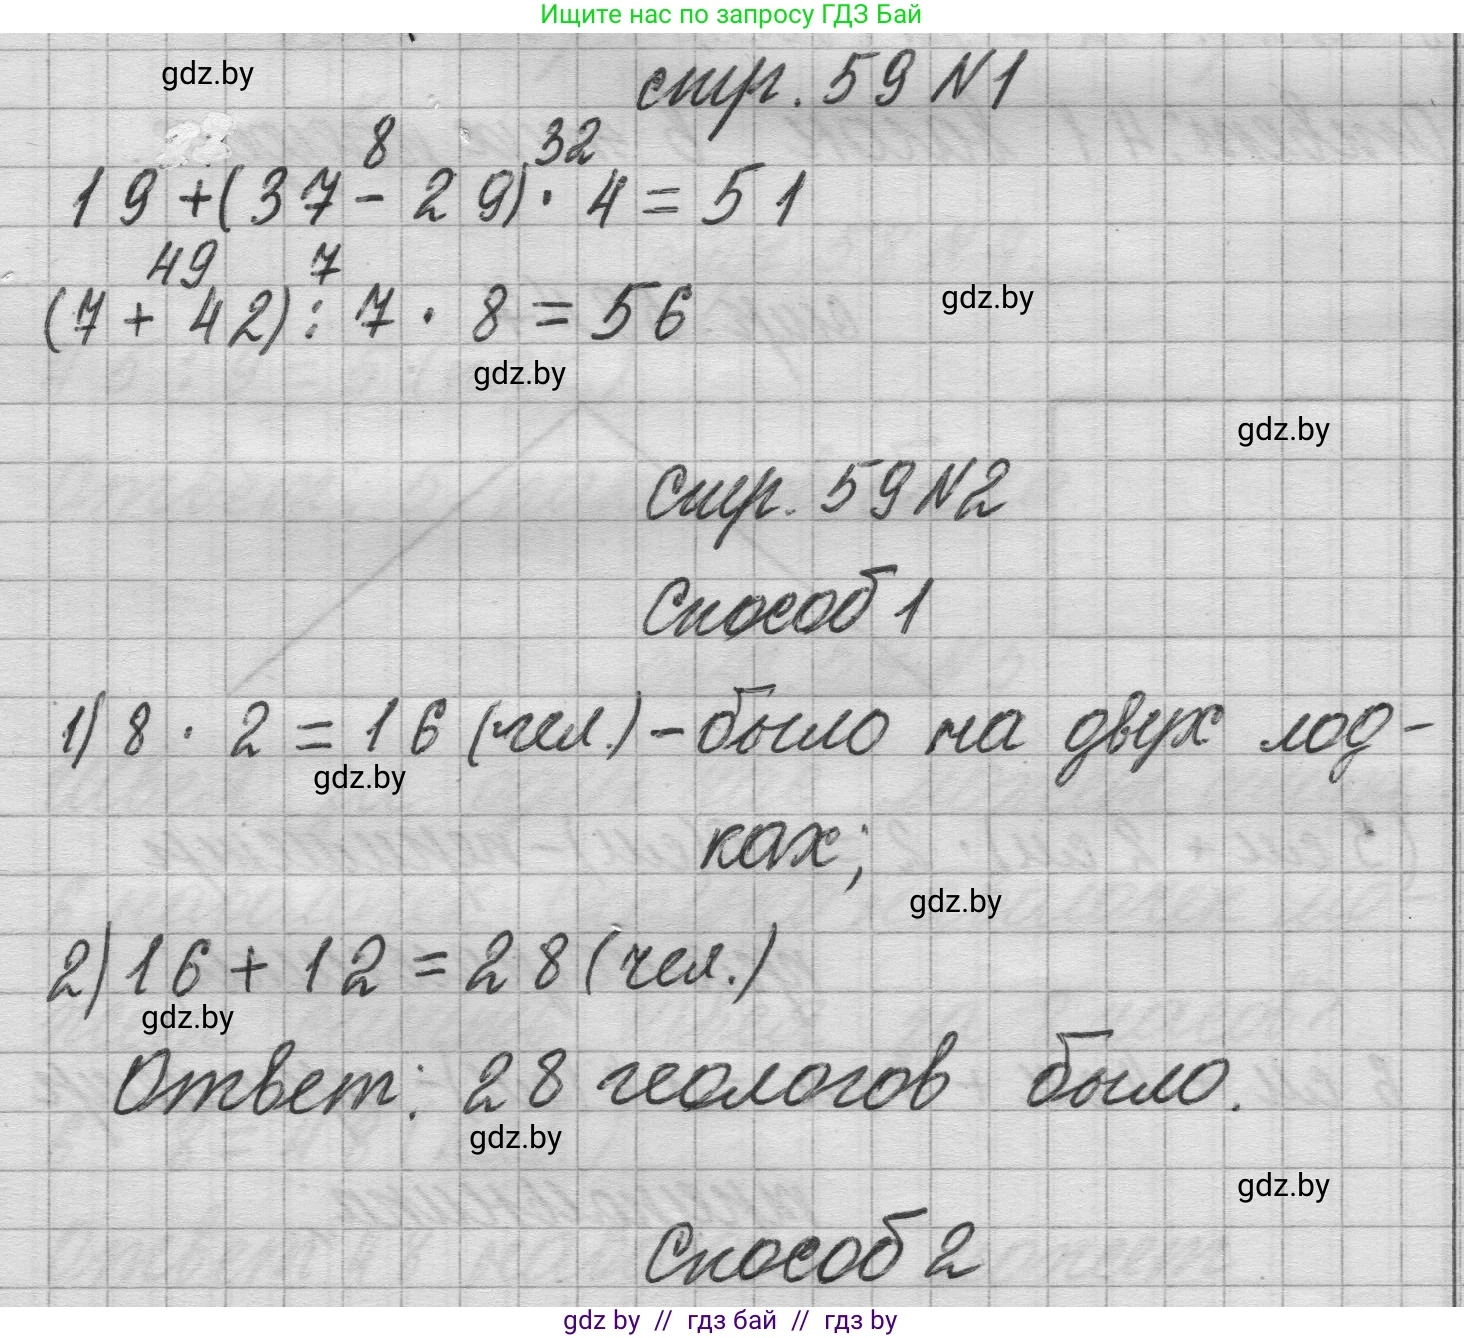 Ищите нас по запросу ГДЗ Бай
gdz.by
стр. 59 N1
8 32
19+(37-29)·4=51
49 7
(7+42):7·8=56
gdz.by
gdz.by
gdz.by
Стр. 59 N2
Способ 1
1) 8 · 2 = 16 (чел.) - было на двух лод-
gdz.by
ках;
gdz.by
2) 16 + 12 = 28 (чел.)
gdz.by
Ответ: 28 геологов было.
gdz.by
gdz.by
Способ 2
gdz by // гдз бай // гдз by